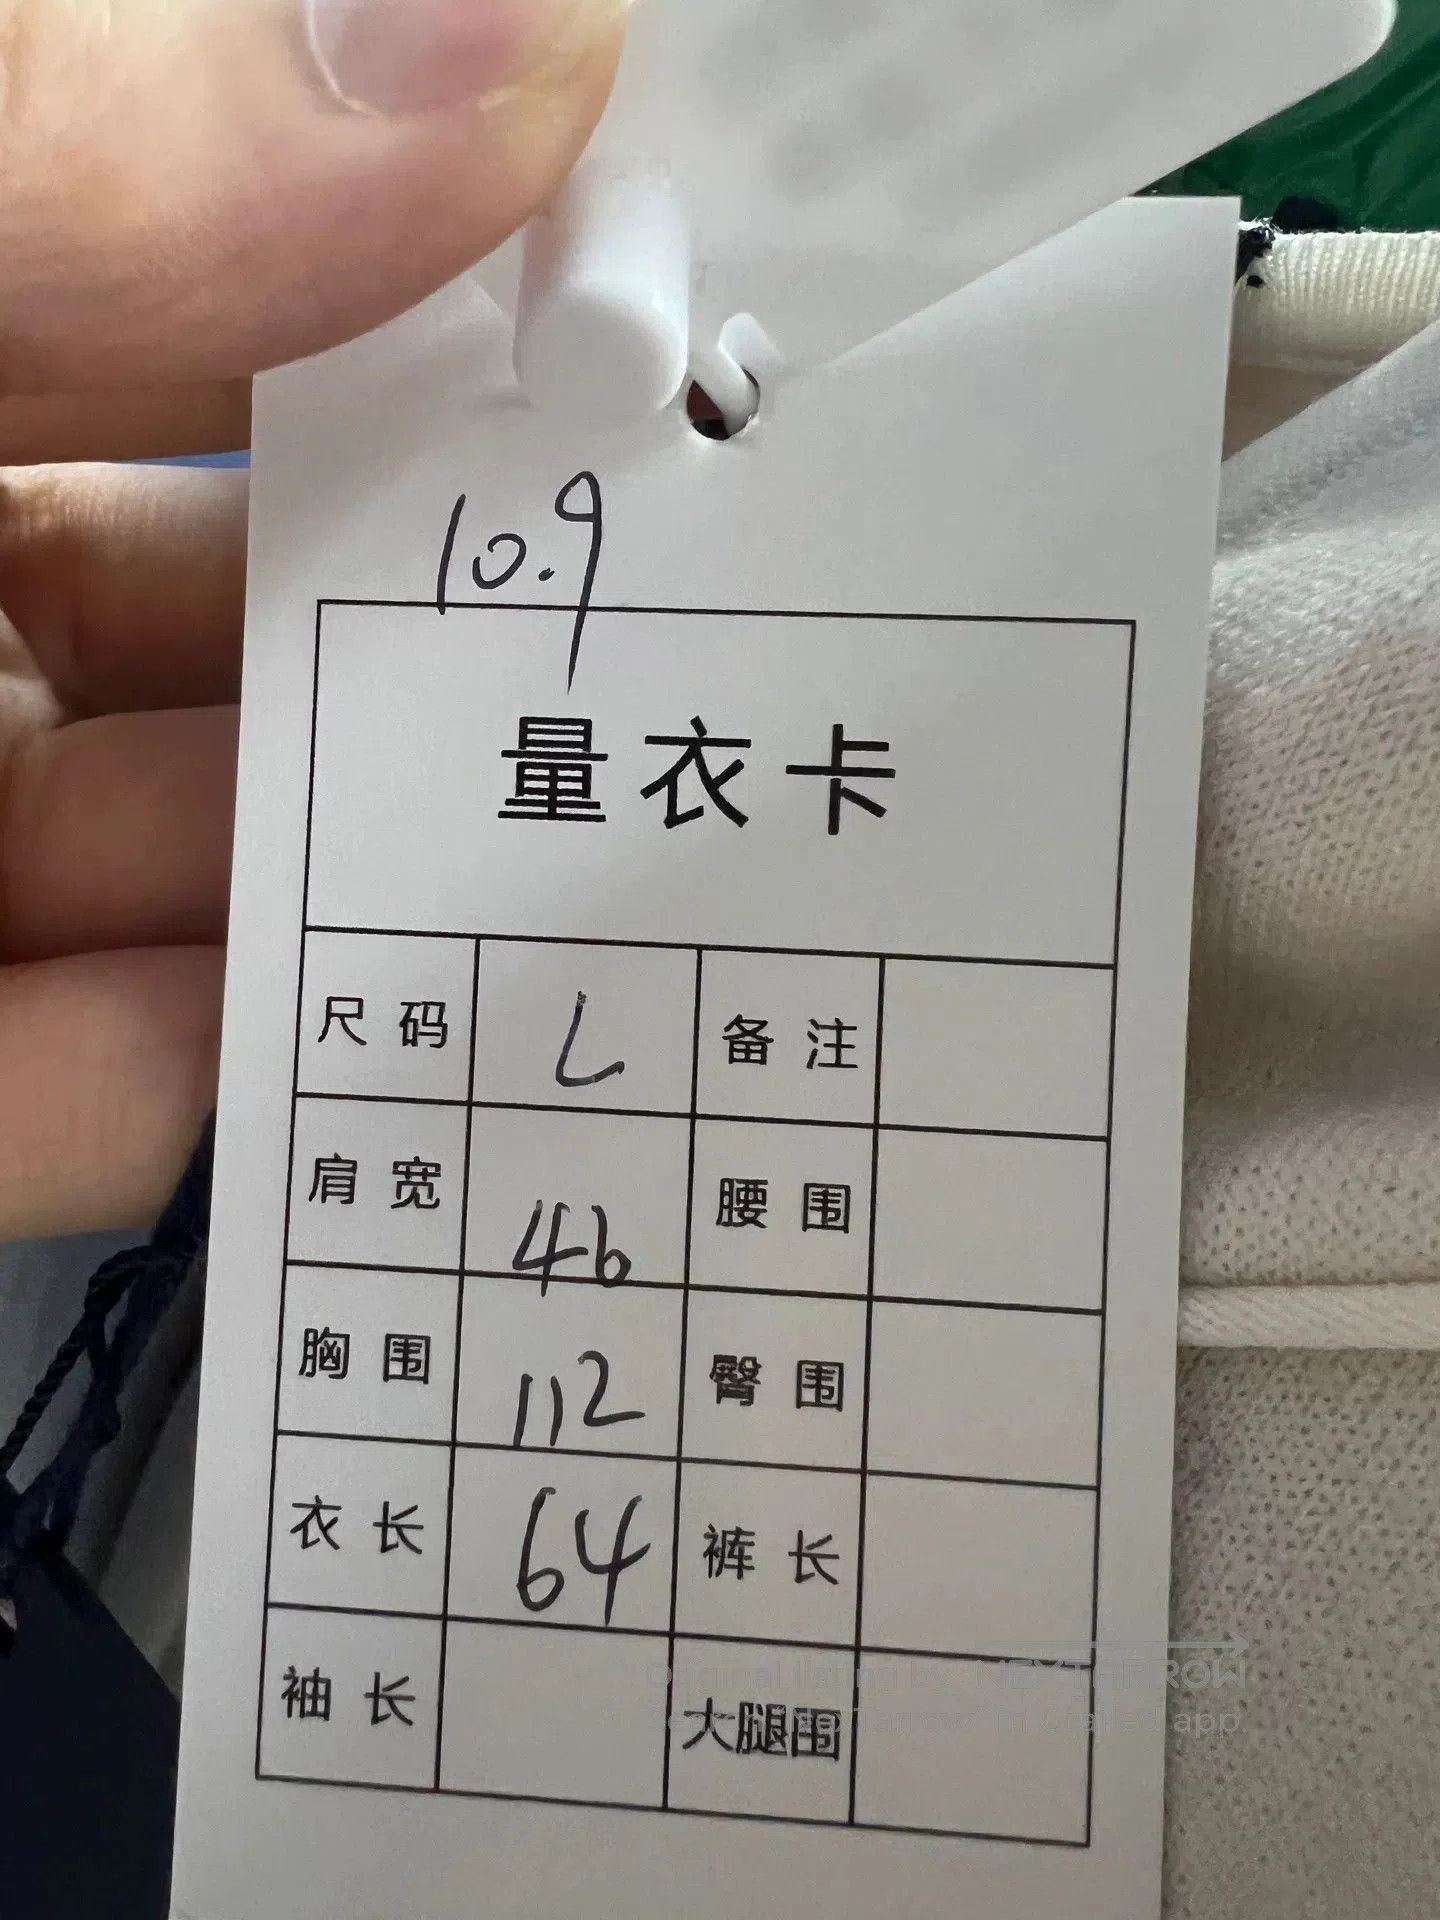 10.9
量衣卡
尺码 L 备注
肩宽 46 腰围
胸围 112 臀围
衣长 64 裤长
袖长 大腿围
Original listing by
app